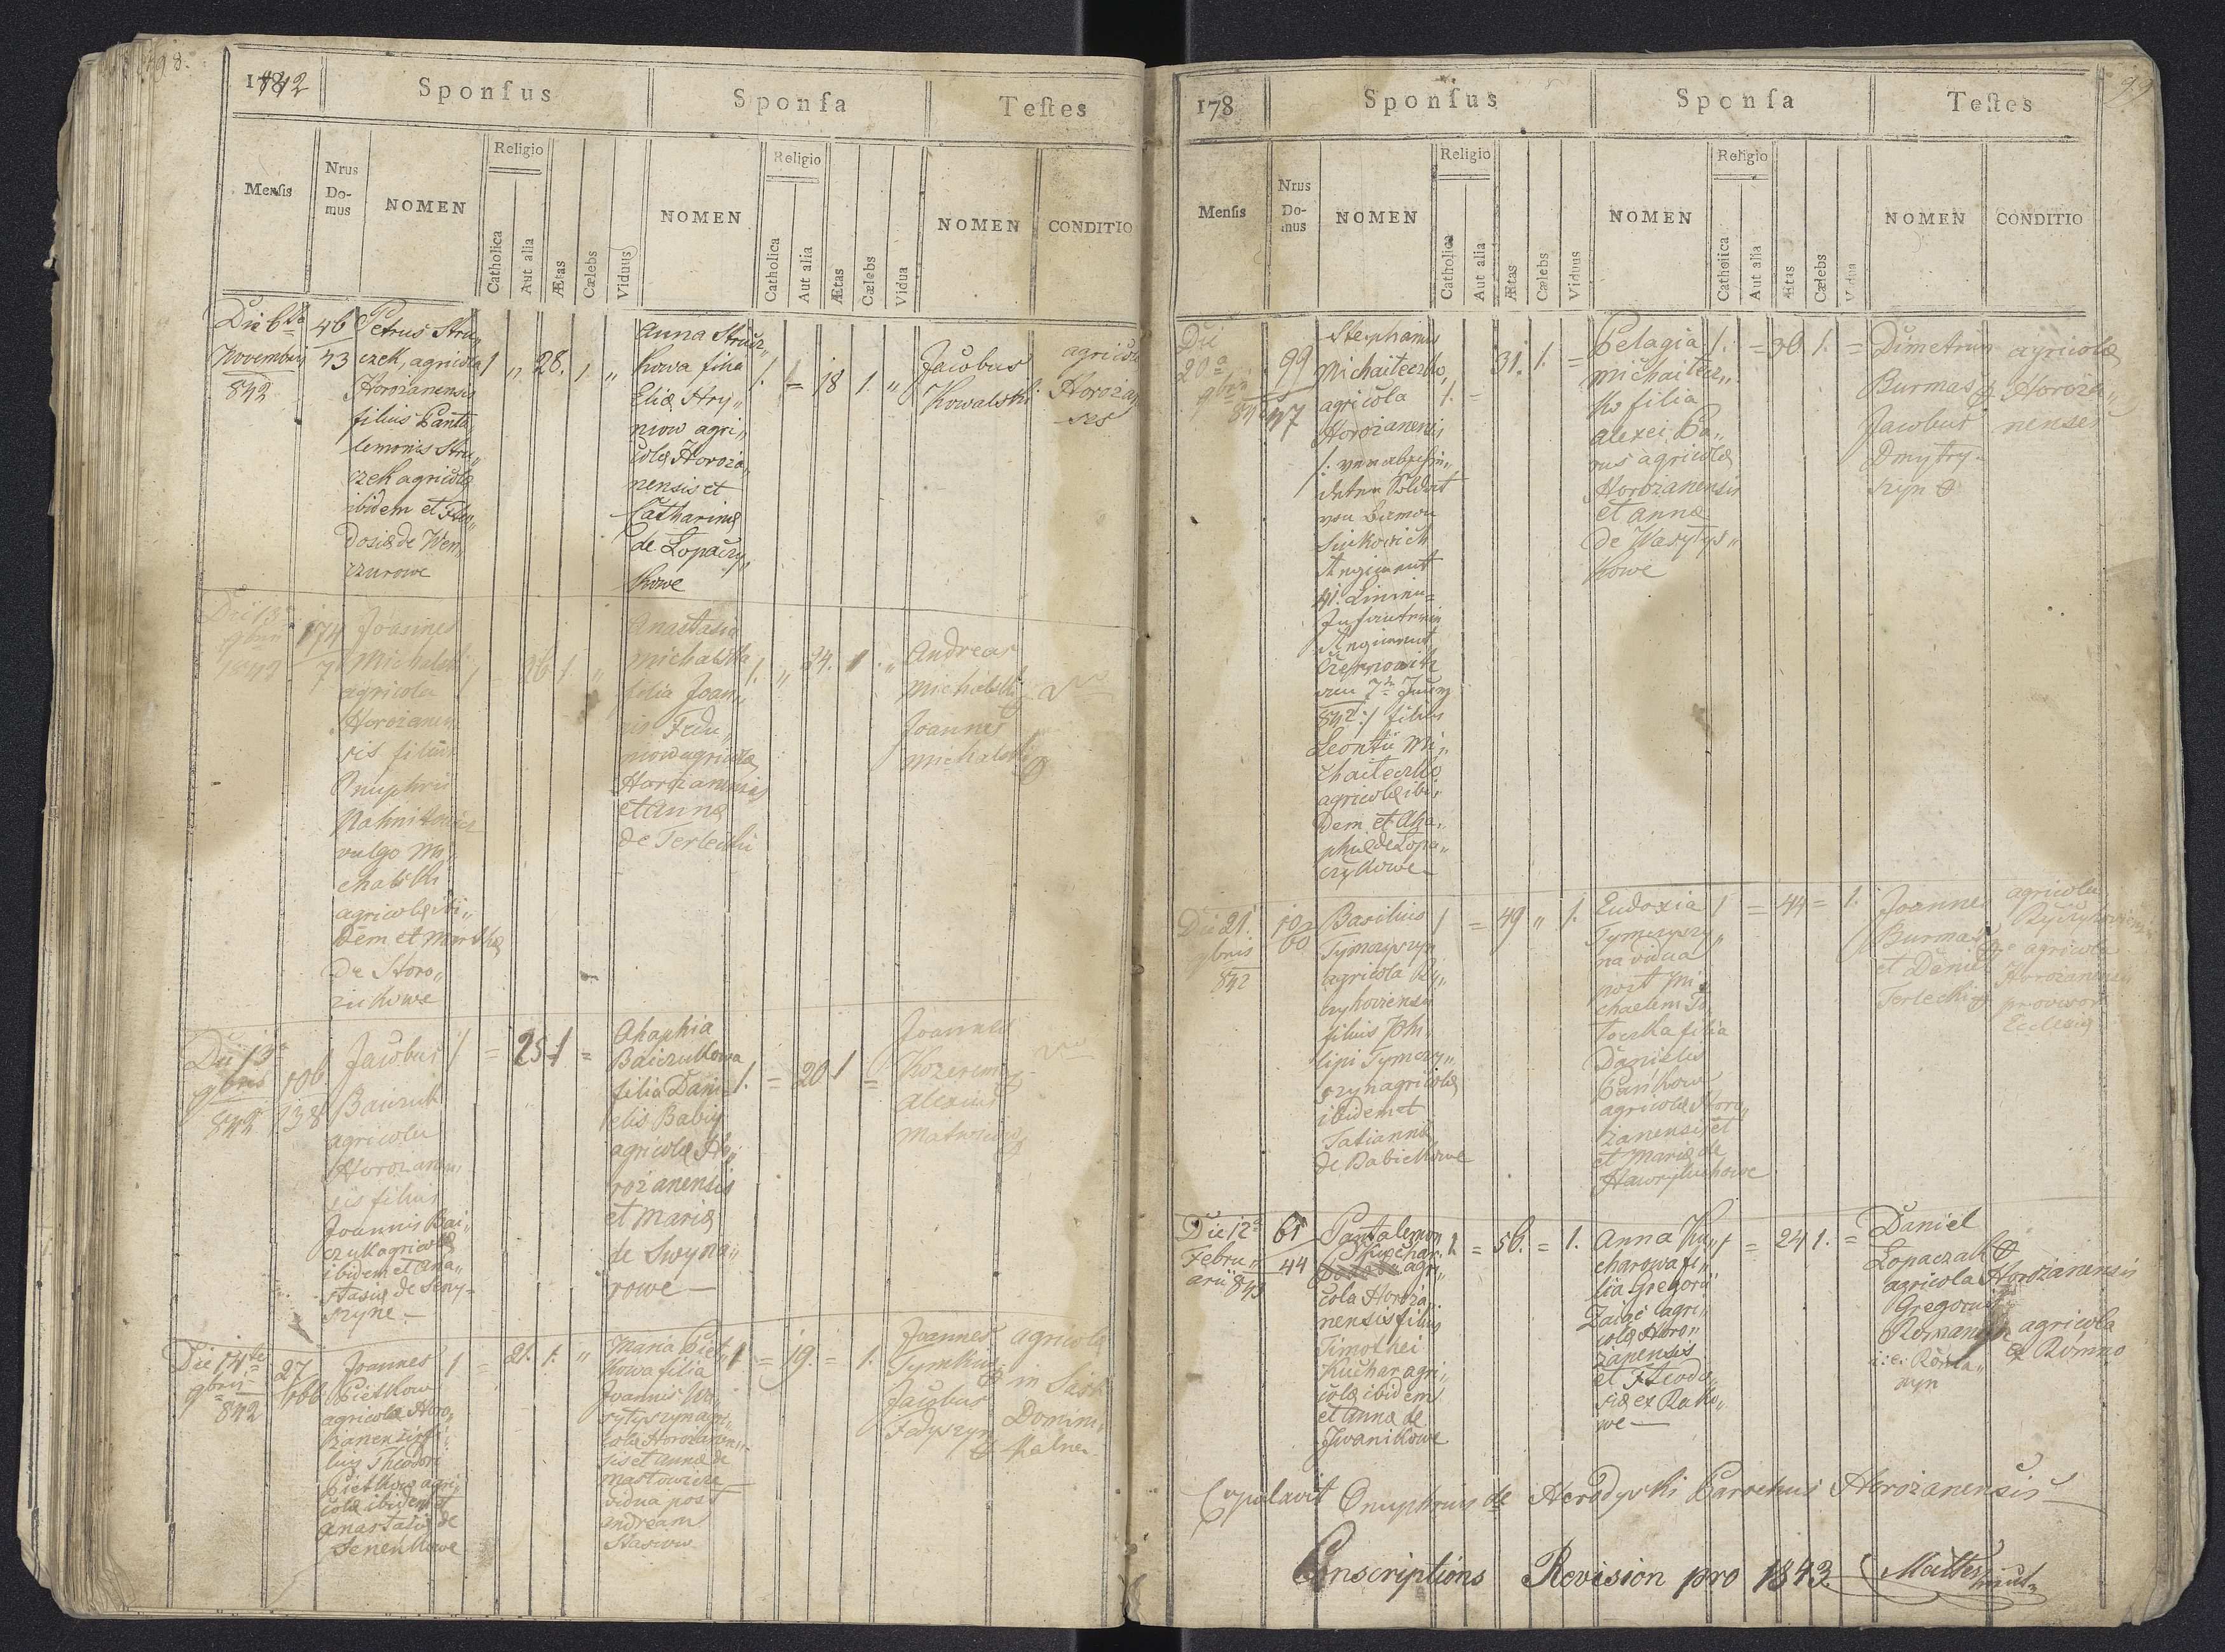 98.
1842
Sponsus
Sponsa
Testes
Mensis
Nrus Domus
NOMEN
Religio
Catholica
Aut alia
Ætas
Cælebs
Viduus
NOMEN
Religio
Catholica
Aut alia
Ætas
Cælebs
Vidua
NOMEN
CONDITIO
Die 6ta
Novembris
842
46
43
Petrus Stru„
czek, agricola
Horożanensis
filius Panta„
lemonis Stru„
czek agricolæ
ibidem et Theo„
dosiæ de Wen„
czurowe
1 „ 28. 1. „
Anna Strucz„
kowa filia
Eliæ Hry„
niow agri„
colæ Horoża„
nensis et
Catharinæ
de Łopaczy„
kowe
1. = 18 1. „
Jacobus
Kowalski
agricolæ
Horożan„
ses
Die 13a
9bris
1842
174
7
Joannes
Michalski
agricola
Horożanen„
sis filius
Onuphrii
vulgo Mi„
chalski
agricolæ ibi„
dem et Marthæ
de Horo„
ziukowe
1 = 26 1. „
Anastasia
Michalska
filia Joan„
nis Fedu„
niow agricolæ
Horożanensis
et Annæ
de Terlecki
1. „ 24. 1. „
Andreas
Michalski
Joannes
Michalski
Die 13a
9bris
842
106.
138
Jacobus
Baiczuk
agricola
Horożanen„
sis filius
Joannis Bai„
czuk agricolæ
ibidem et Ana„
stasiæ de Seny„
szyne
1 = 25 1 =
Ahaphia
Baiczukowa
filia Dani„
elis Babiy
agricolæ Ho„
rożanensis
et Mariæ
de Swyna„
rowe
1. = 20 1 =
Joannes
Alexius
Die 14te
9bris
842
27
166
Joannes
Pietkow
agricolæ Horo„
żanensis fi„
lius Theodori
Pietkow agri„
colæ ibidem et
Anastasiæ de
Senenkowe
1 = 21. 1. „
Maria Piet„
kowa filia
Joannis Wa„
sytyszyn agri„
colæ Horożanen„
sis et Annæ de
Mastowicze
vidua post
Andream
Stasiow
1 = 19. = 1.
Joannes
Tymkiw
Jacobus
Fedyszyn
agricolæ
in
Domini„
99
178
Sponsus
Sponsa
Testes
Mensis
Nrus Domus
NOMEN
Religio
Catholica
Aut alia
Ætas
Cælebs
Viduus
NOMEN
Religio
Catholica
Aut alia
Ætas
Cælebs
Vidua
NOMEN
CONDITIO
Die
20a
9bris
842
99
47
Stephanus
Michaiteczko
agricola
Horożanensis
/: verabschie„
deter Soldat
von Baron
Regiment
41. Linien
Infanterie
Regiment
Czernowitz
842 :/ filius
Leontii Mi„
chaiteczko
agricolæ ibi„
dem et Aha„
phiæ de Łopa„
czykowe
1. = 31. 1. =
Pelagia
Michaitecz„
ko filia
Alexei Ba„
rus agricolæ
Horożanensis
et Annæ
de Wasytys„
kowe
1. = 30. 1. =
Dimetrius
Burmas
Jacobus
Dmytry„
szyn
agricolæ
Horoża„
nenses
Die 21.
9bris
842
102
60
Basilius
Tymczyszyn
agricola Ry„
czyhoviensis
filius Phi„
lipi Tymczy„
szyn agricolæ
ibidem et
Tatiannæ
de Babiekowe
1 = 49 „ 1.
Eudoxia
Tymczyszy„
na vidua
post Mi„
chaelem To„
toczka filia
Danielis
Pańkow
agricolæ Horo„
żanensis et
et Mariæ de
Hawrylukowe
1 = 44 = 1.
Joannes
Burmas
et Daniel
Terlecki
agricola
agricola
Horożanensis
provisor
Ecclesiæ
Die 12a
Febru„
arii 843
61
44
Pantalemon
Kuchar
agri„
cola Horoża„
nensis filius
Timothei
Kuchar agri„
colæ ibidem
et Annæ de
Iwanikowe
1. = 56. = 1.
Anna Ku„
charowa fi„
lia Gregorii
Zaiac agri„
colæ Horo„
żanensis
et Theodo„
siæ ex Rako„
we
1 = 24 1. =
Daniel
Łopaczak
agricola Horożanensis
Gregorius
Romanyn agricola
i: e: Roma„ ex Romno
nyn
Copulavit Onuphrius de Herodyski Parochus Horożanensis
Conscriptions Revision pro 1843.